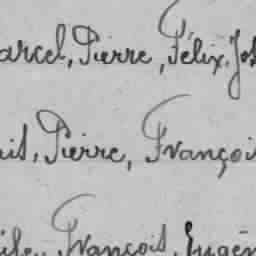 arcel, Pierre, Félix, Jos
uis, Pierre, Françoi
ile, François, Eugèn